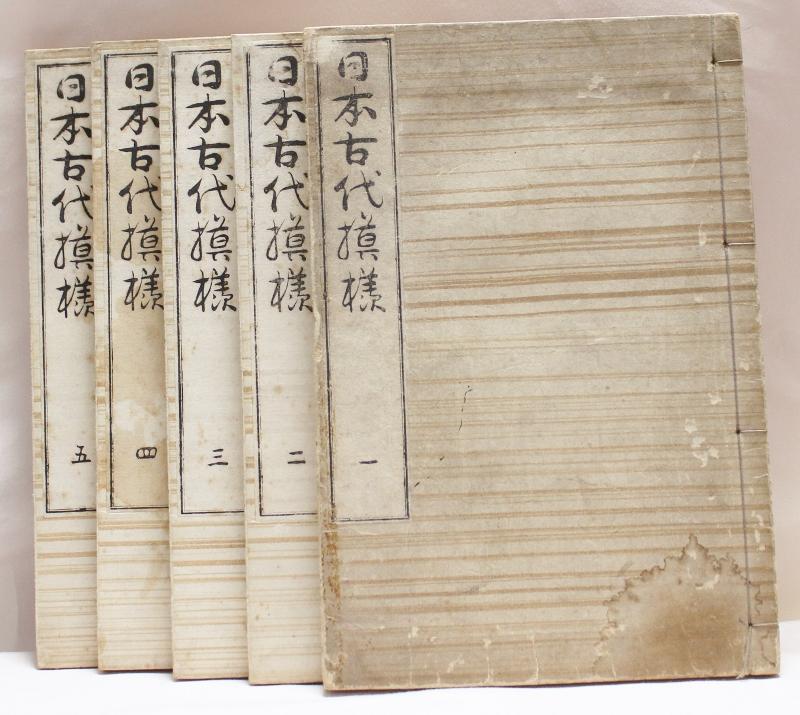 日本古代摸様 一
日本古代摸様 二
日本古代摸様 三
日本古代摸様 四
日本古代摸様 五